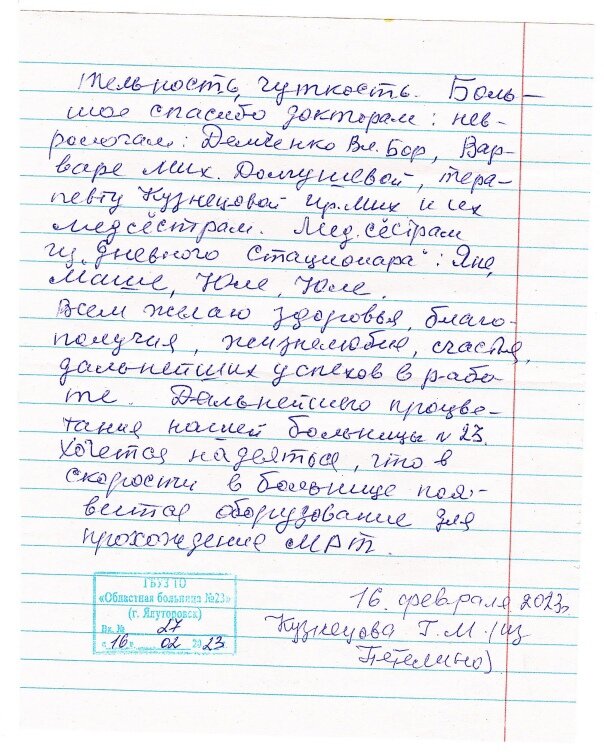 тельность, чуткость. Боль-
шое спасибо докторам: нев-
рологам: Демченко Вл. Бор, Вар-
варе Мих. Долгушевой, тера-
певту Кузнецовой Ир. Мих и их
медсёстрам. Мед. сёстрам
из "дневного стационара": Яне,
Маше, Юле, Юле.
Всем желаю здоровья, благо-
получия, жизнелюбия, счастья,
дальнейших успехов в рабо-
те. Дальнейшего процве-
тания нашей больницы №23.
Хочется надеяться, что в
скорости в больнице поя-
вится оборудование для
прохождение МРТ.
16. февраля 2023г
Кузнецова Г. М. (из
Петелино)
ГБУЗ ТО
«Областная больница №23»
(г. Ялуторовск)
Вх. № 27
«16» 02 2023